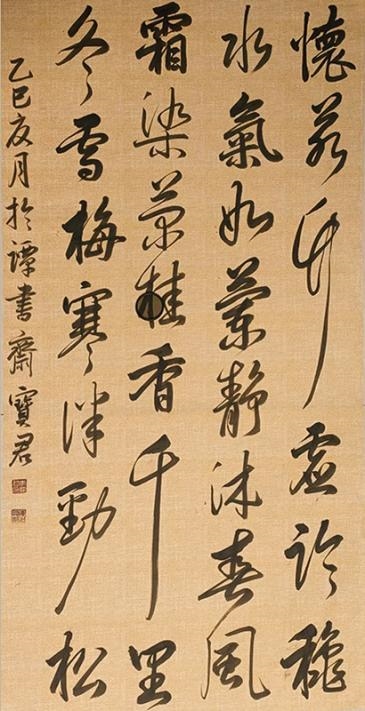 懷若竹虛臨穐
水氣如蘭靜沐春風
霜染桂香千里
冬雪梅寒伴勁松
乙巳夏月於譚書齋寶君